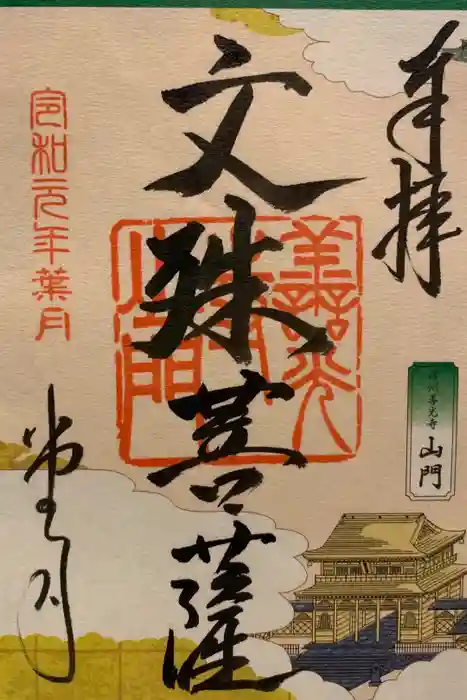 奉拝
信州善光寺
山門
文殊菩薩
令和元年葉月